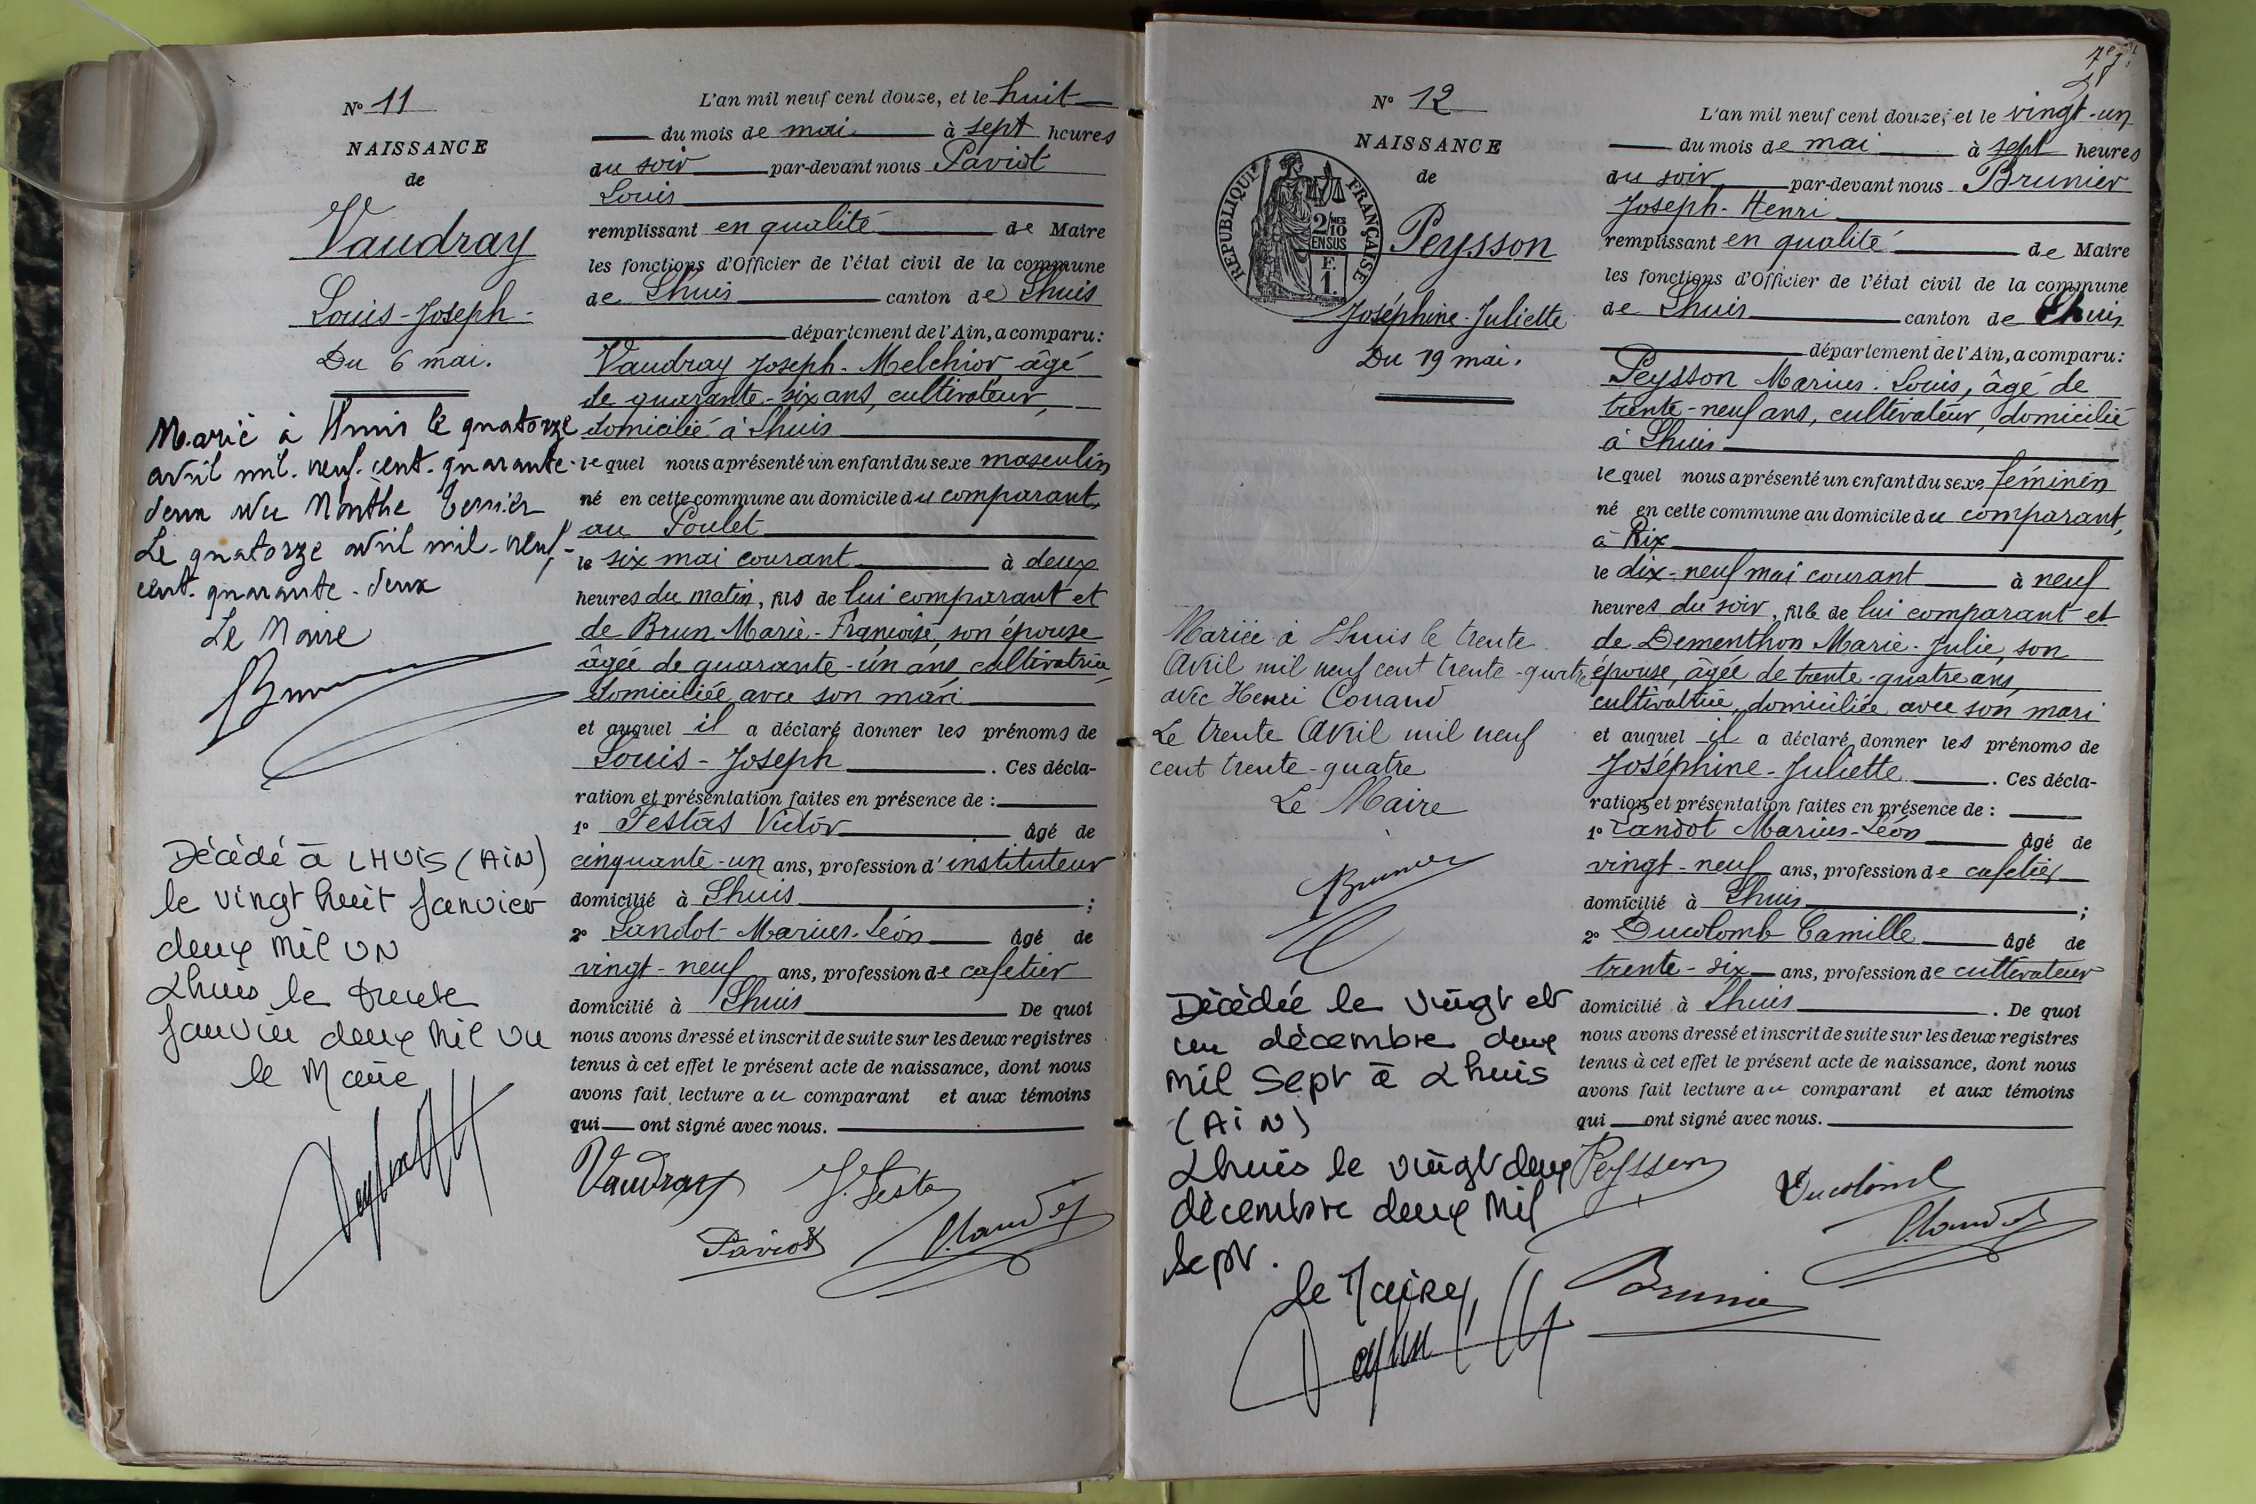 N° 11
NAISSANCE
de
Vaudray
Louis-Joseph-
Du 6 mai.
Marié à Lhuis le quatorze
avril mil. neuf. cent. quarante-
deux avec Marthe
Le quatorze avril mil-neuf-
cent. quarante-deux
Le Maire
Décédé à LHUIS (AIN)
le vingt huit Janvier
deux mil UN
Lhuis le trente
Janvier deux mil un
le Maire
L'an mil neuf cent douze, et le huit
du mois de mai à sept heures
du soir par-devant nous Paviot
Louis
remplissant en qualité de Maire
les fonctions d'Officier de l'état civil de la commune
de Lhuis canton de Lhuis
département de l'Ain, a comparu:
Vaudray Joseph-Melchior, âgé
de quarante-six ans, cultivateur,
domicilié à Lhuis
lequel nous a présenté un enfant du sexe masculin
né en cette commune au domicile du comparant,
au Poulet
le six mai courant à deux
heures du matin, fils de lui comparant et
de Brun Marie-Françoise, son épouse
âgée de quarante-un ans, cultivatrice,
domiciliée avec son mari
et auquel il a déclaré donner les prénoms de
Louis-Joseph. Ces décla-
ration et présentation faites en présence de :
1° Testas Victor âgé de
cinquante-un ans, profession d'instituteur
domicilié à Lhuis ;
2° Landot Marius-Léon âgé de
vingt-neuf ans, profession de cafetier
domicilié à Lhuis De quoi
nous avons dressé et inscrit de suite sur les deux registres
tenus à cet effet le présent acte de naissance, dont nous
avons fait lecture au comparant et aux témoins
qui ont signé avec nous.
Vaudray V. Testas
Paviot Landot
N° 12
NAISSANCE
de
RÉPUBLIQUE FRANÇAISE
2/10 MES
EN SUS
F.
1.
Peysson
Joséphine-Juliette
Du 19 mai.
Mariée à Lhuis le trente
Avril mil neuf cent trente-quatre
avec Henri Conand
Le trente Avril mil neuf
cent trente-quatre
Le Maire
Brunier
Décédée le vingt et
un décembre deux
mil Sept à Lhuis
(AiN)
Lhuis le vingt deux
décembre deux mil
Sept.
le Maire,
L'an mil neuf cent douze, et le vingt-un
du mois de mai à sept heures
du soir par-devant nous Brunier
Joseph-Henri
remplissant en qualité de Maire
les fonctions d'Officier de l'état civil de la commune
de Lhuis canton de Lhuis
département de l'Ain, a comparu:
Peysson Marius-Louis, âgé de
trente-neuf ans, cultivateur, domicilié
à Lhuis
lequel nous a présenté un enfant du sexe féminin
né en cette commune au domicile du comparant,
à Rix
le dix-neuf mai courant à neuf
heures du soir, fille de lui comparant et
de Dementhon Marie-Julie, son
épouse, âgée de trente-quatre ans,
cultivatrice, domiciliée avec son mari
et auquel il a déclaré donner les prénoms de
Joséphine-Juliette. Ces décla-
ration et présentation faites en présence de :
1° Landot Marius-Léon âgé de
vingt-neuf ans, profession de cafetier
domicilié à Lhuis ;
2° Ducolomb Camille âgé de
trente-six ans, profession de cultivateur
domicilié à Lhuis. De quoi
nous avons dressé et inscrit de suite sur les deux registres
tenus à cet effet le présent acte de naissance, dont nous
avons fait lecture au comparant et aux témoins
qui ont signé avec nous.
Peysson Ducolomb
Landot
Brunier